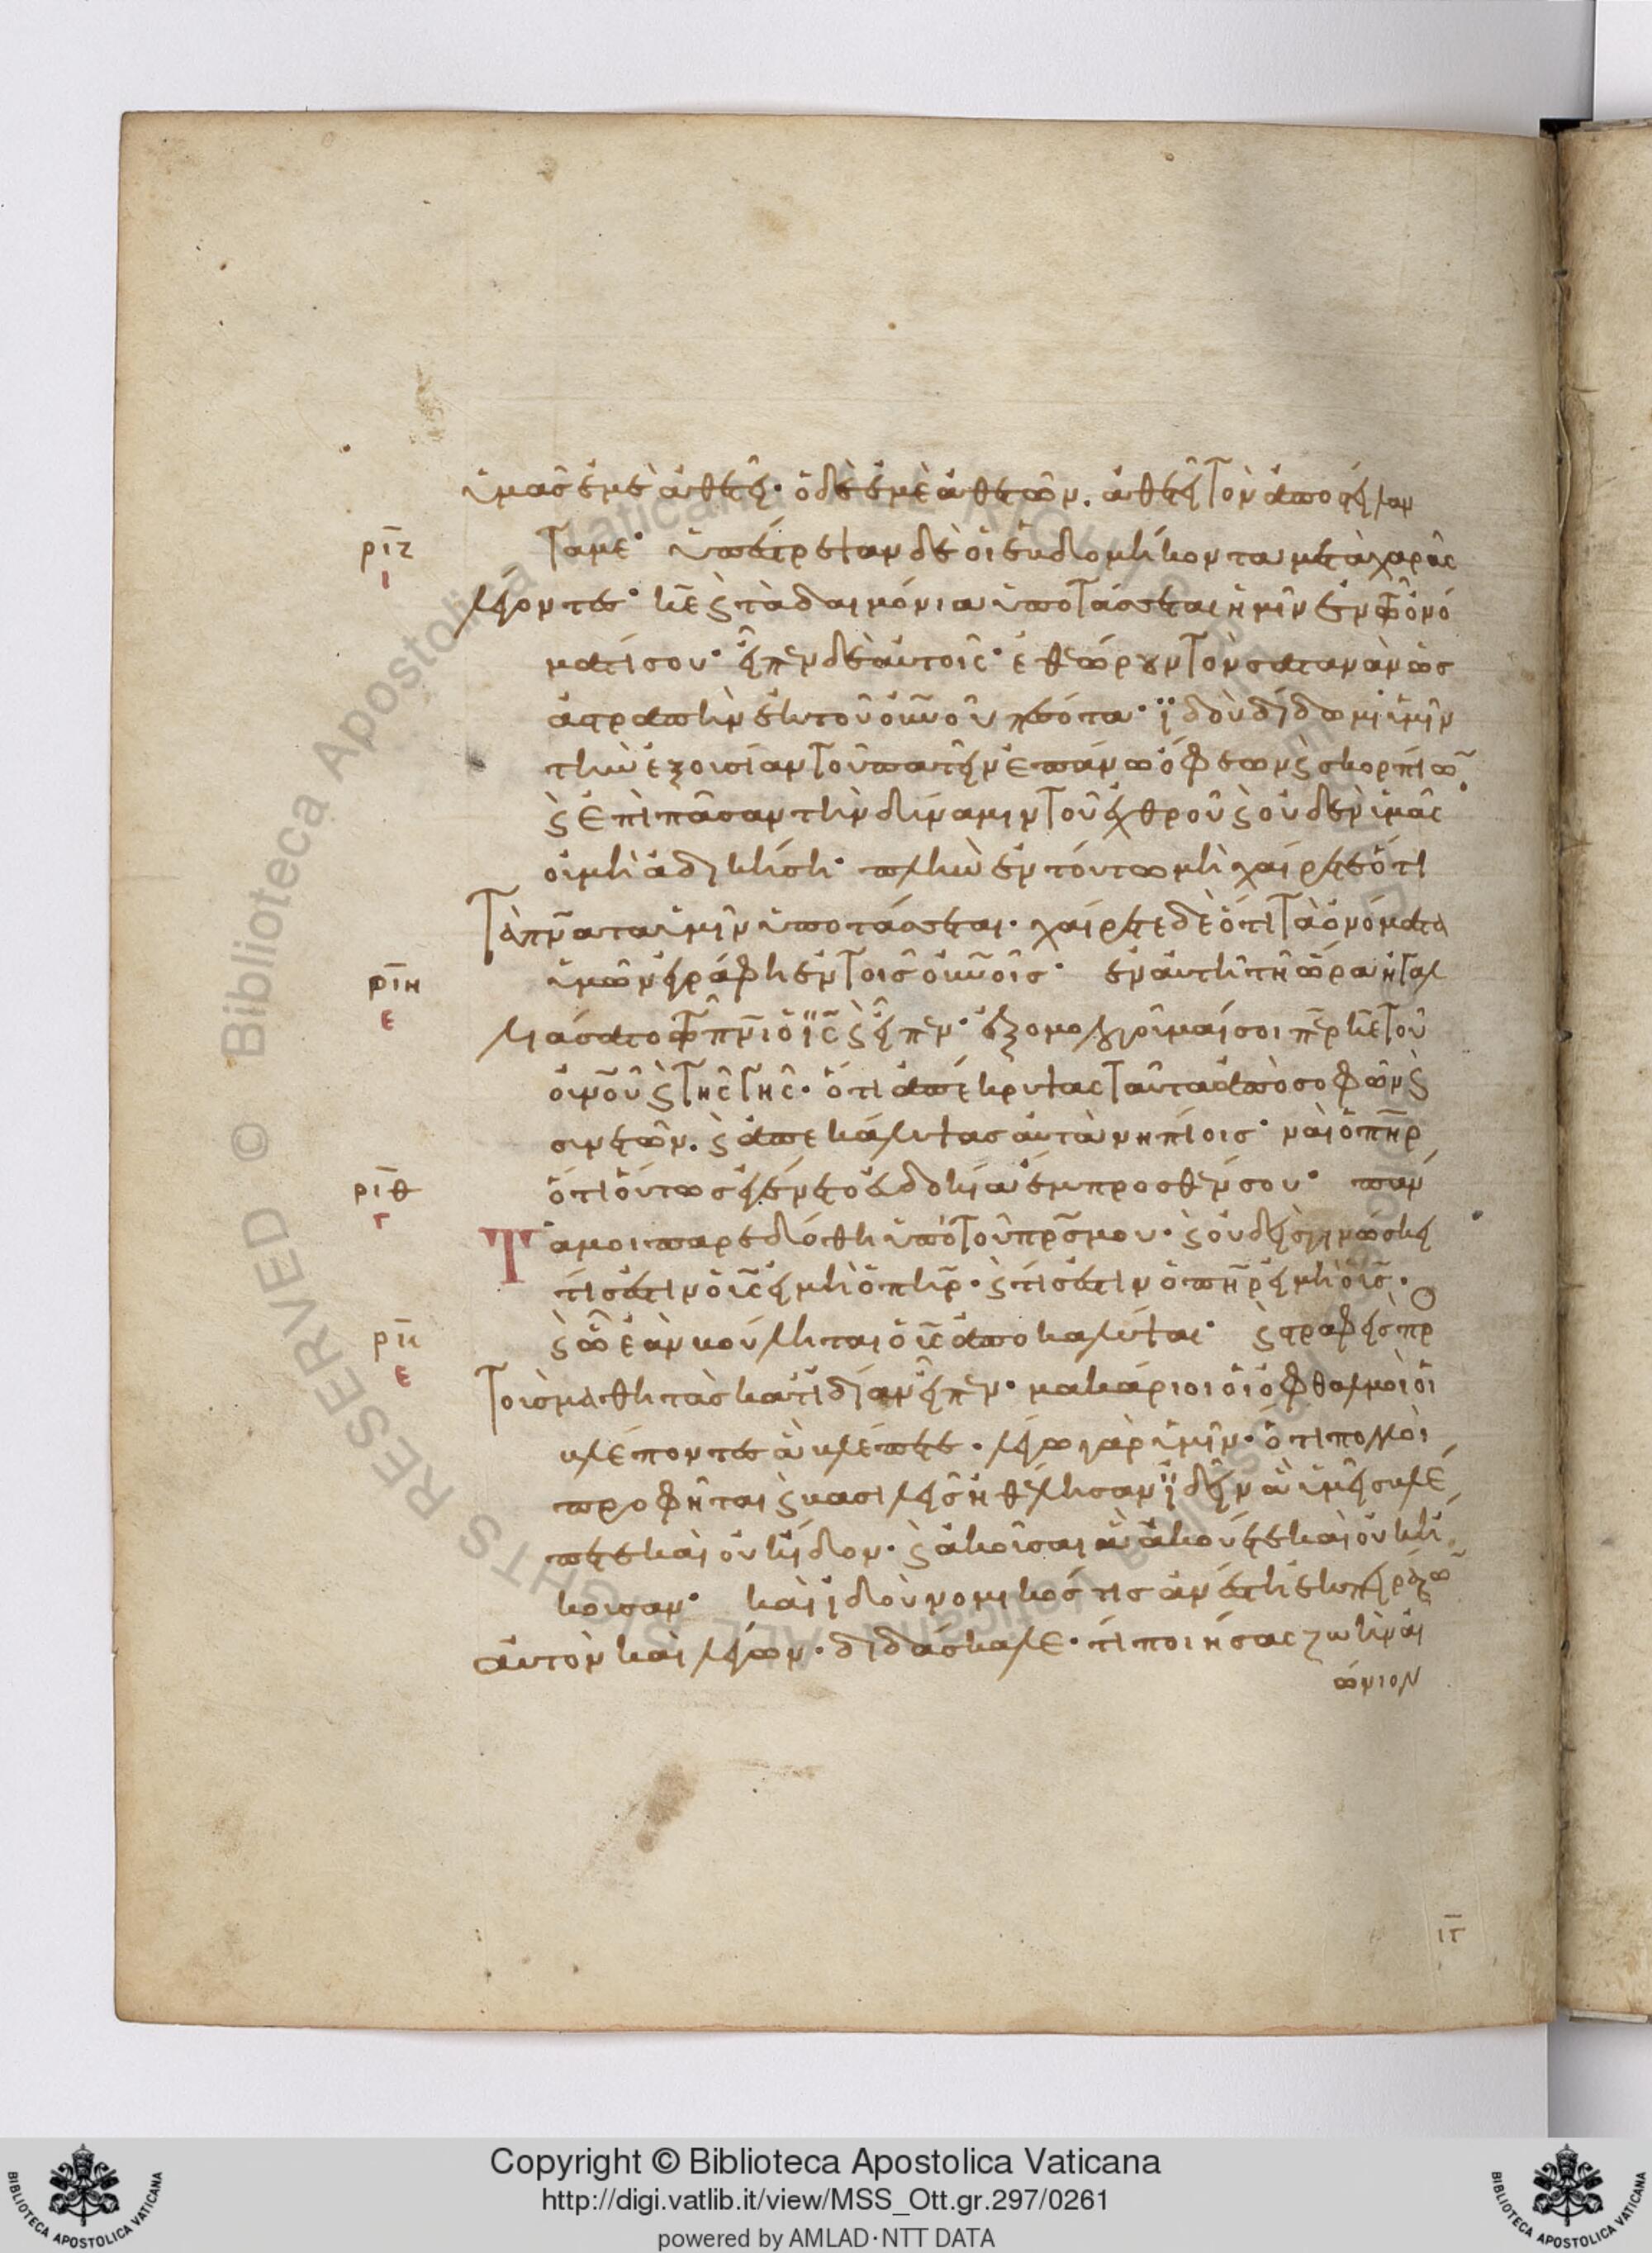 ὑμᾶς ἐμὲ ἀθετεῖ· ὁ δὲ ἐμὲ ἀθετῶν, ἀθετεῖ τὸν ἀποστείλαν
ρ̅ι̅ζ̅ τά με· ὑπέστρεψαν δὲ οἱ ἑβδομήκοντα μετὰ χαρᾶς
ι
λέγοντες· κ̅ε̅ ϗ τὰ δαιμόνια ὑποτάσσεται ἡμῖν ἐν τῷ ὀνό
ματί σου· εἶπεν δὲ αὐτοῖς· ἐθεώρουν τὸν σατανᾶν ὡς
ἀστραπὴν ἐκ τοῦ οὐνοῦ πεσόντα· ἰδοὺ δίδωμι ὑμῖν
τὴν ἐξουσίαν τοῦ πατεῖν ἐπάνω ὄφεων ϗ σκορπίων
ϗ ἐπὶ πᾶσαν τὴν δύναμιν τοῦ ἐχθροῦ ϗ οὐδὲν ὑμᾶς
οὐ μὴ ἀδικήσῃ· πλὴν ἐν τούτω μὴ χαίρετε ὅτι
τὰ πν̅ατα ὑμῖν ὑποτάσσεται· χαίρετε δὲ ὅτι τὰ ὀνόματα
ρ̅ι̅η̅ ὑμῶν ἐγράφη ἐν τοῖς οὐνοῖς· ἐν αὐτῇ τῇ ὥρα ἠγαλ
ε
λιάσατο τῷ πν̅ι ὁ ι̅ς̅ ϗ εἶπεν· ἐξομολογοῦμαί σοι π̅ε̅ρ̅ κ̅ε̅ τοῦ
οὐνοῦ ϗ τῆς γῆς· ὅτι ἀπέκρυψας ταῦτα ἀπὸ σοφῶν ϗ
συνετῶν, ϗ ἀπεκάλυψας αὐτὰ νηπίοις· ναὶ ὁ π̅η̅ρ̅
ρ̅ι̅θ̅ ὅτι οὕτως ἐγένετο εὐδοκία ἔμπροσθέν σου· πάν
γ
Τα μοι παρεδόθη ὑπὸ τοῦ πρ̅ς μου· ϗ οὐδεὶς γινώσκει
τίς ἐστιν ὁ υ̅ς̅ εἰ μὴ ὁ π̅η̅ρ̅· ϗ τίς ἐστιν ὁ π̅η̅ρ̅ εἰ μὴ ὁ υ̅ς̅·
ρ̅κ̅ ϗ ᾧ ἐὰν βούληται ὁ υ̅ς̅ ἀποκαλύψαι· ϗ στραφεὶς πρὸ
ε
τοὺς μαθητὰς κατ' ἰδίαν εἶπεν· μακάριοι οἱ ὀφθαλμοὶ οἱ
βλέποντες ἃ βλέπετε· λέγω γὰρ ὑμῖν· ὅτι πολλοὶ
προφῆται ϗ βασιλεῖς ἠθέλησαν ἰδεῖν ἃ ὑμεῖς βλέ
πετε καὶ οὐκ εἶδον· ϗ ἀκοῦσαι ἃ ἀκούετε καὶ οὐκ ἤ
κουσαν· καὶ ἰδοὺ νομικός τις ἀνέστη ἐκπειράζων
αὐτὸν καὶ λέγων· διδάσκαλε· τί ποιήσας ζωὴν αἰ
ώνιον
ιγ
Copyright © Biblioteca Apostolica Vaticana
http://digi.vatlib.it/view/MSS_Ott.gr.297/0261
powered by AMLAD·NTT DATA